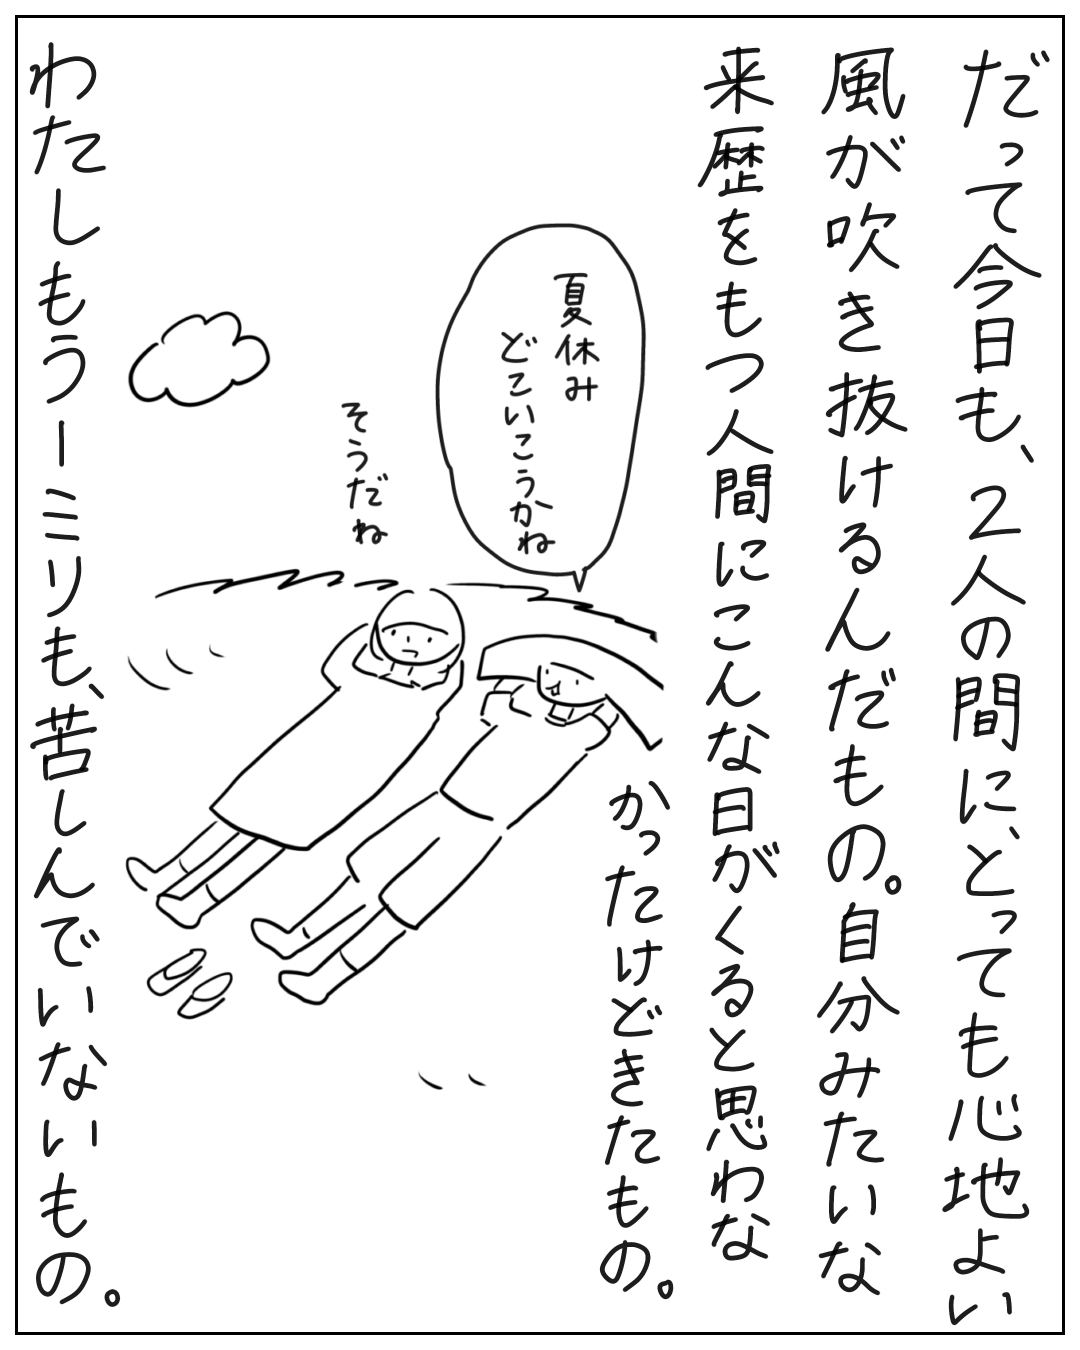 だって今日も、2人の間に、とっても心地よい
風が吹き抜けるんだもの。自分みたいな
来歴をもつ人間にこんな日がくると思わな
かったけどきたもの。
夏休み
どこいこうかね
そうだね
わたしもう一ミリも、苦しんでいないもの。